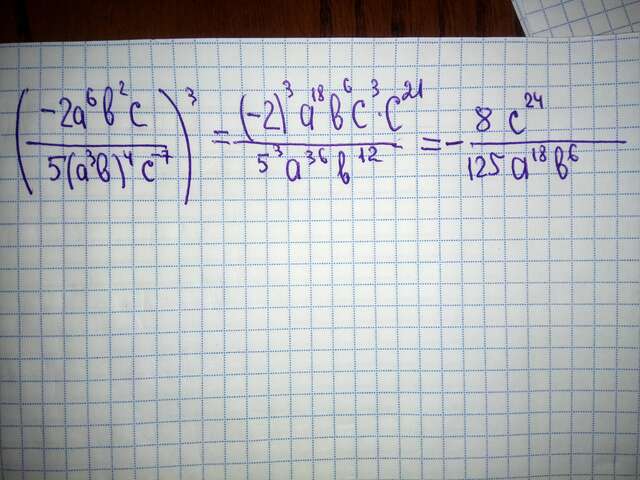 (-2a⁶b²c / 5(a³b)⁴c⁻⁷)³ = (-2)³a¹⁸b⁶c³·c²¹ / 5³a³⁶b¹² = - 8c²⁴ / 125a¹⁸b⁶